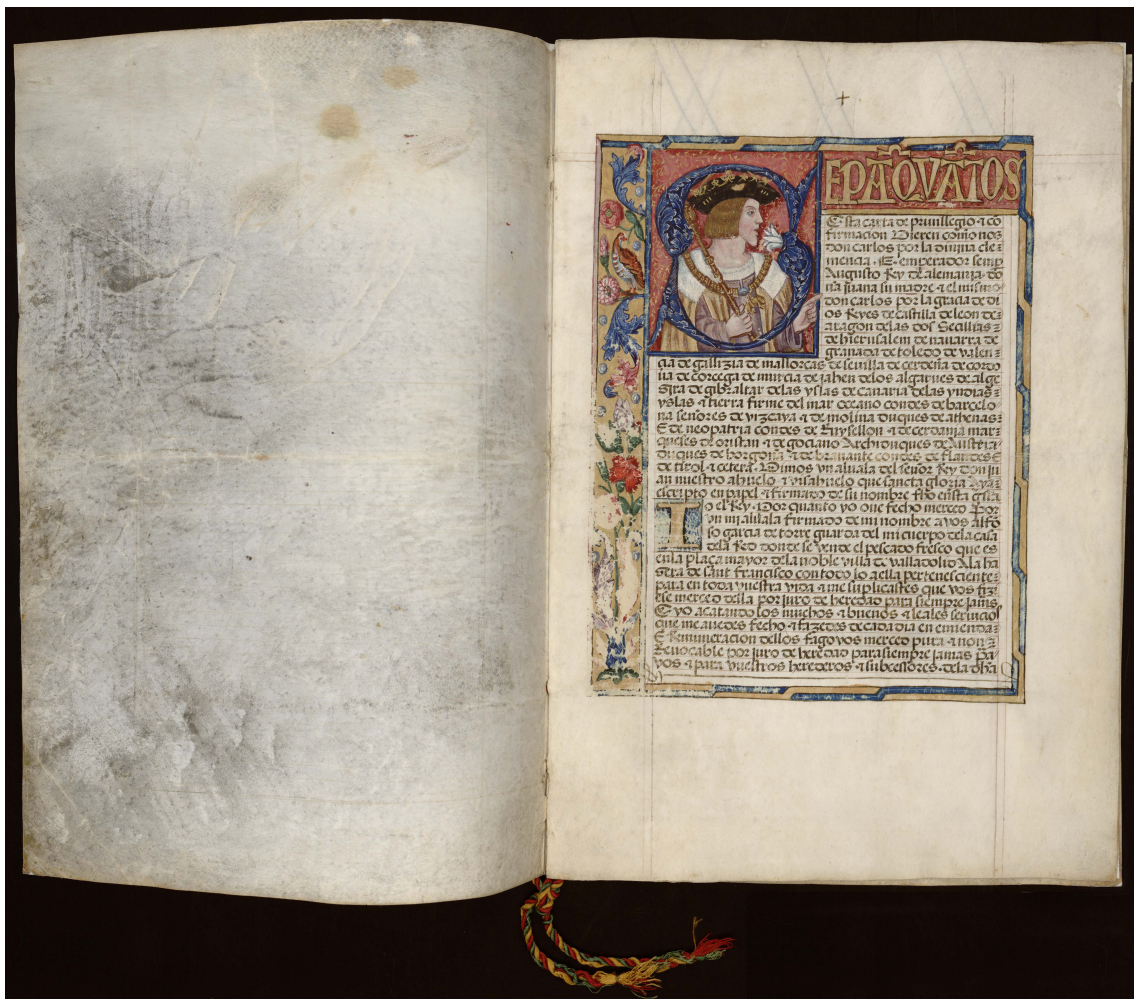 SEPAN QUANTOS
Esta carta de priuillegio ⁊ co
firmacion Vieren como nos
don carlos por la diuina cle
mencia .E. emperador semp
Augusto Rey de alemania. do
ña juana su madre ⁊ el mismo
don carlos por la gracia de di
os Reyes de castilla de leon de
aragon delas dos Secillias
de hierusalem de nauarra de
granada de toledo de valen
cia de gallizia de mallorcas de seuilla de cerdeña de cordo
ua de corcega de murcia de jahen delos algarues de alge
zira de gibraltar delas yslas de canaria delas yndias
yslas ⁊ tierra firme del mar oceano condes de barcelo
na señores de vizcaya ⁊ de molina duques de athenas
E de neopatria condes de Ruysellon ⁊ de cerdania mar
queses de oristan ⁊ de gociano Archiduques de Austria
duques de borgoña ⁊ de brauante condes de flandes E
de tirol ⁊ cetera. Vimos vn aluala del señor Rey don ju
an nuestro ahuelo ⁊ visahuelo que sancta gloria Aya
escripto en papel ⁊ firmado de su nombre fho en esta guisa
Yo el Rey. Por quanto yo oue fecho merced Por
vn mi aluala firmado de mi nombre a vos alfo
so garcia de torre guarda del mi cuerpo dela casa
dela Red donde se vende el pescado fresco que es
enla plaça mayor dela noble villa de valladolid Ala ha
çera de sant francisco con todo lo a ella pertenesciente
para en toda vuestra vida ⁊ me suplicastes que vos fizi
ese merced della por juro de heredad para siempre jamas
E yo acatando los muchos ⁊ buenos ⁊ leales seruicios
que me auedes fecho ⁊ fazedes de cada dia en emienda
E Remuneracion dellos fago vos merced pura ⁊ non
Reuocable por juro de heredad para siempre jamas Pa
vos ⁊ para vuestros herederos ⁊ subcessores. dela dha